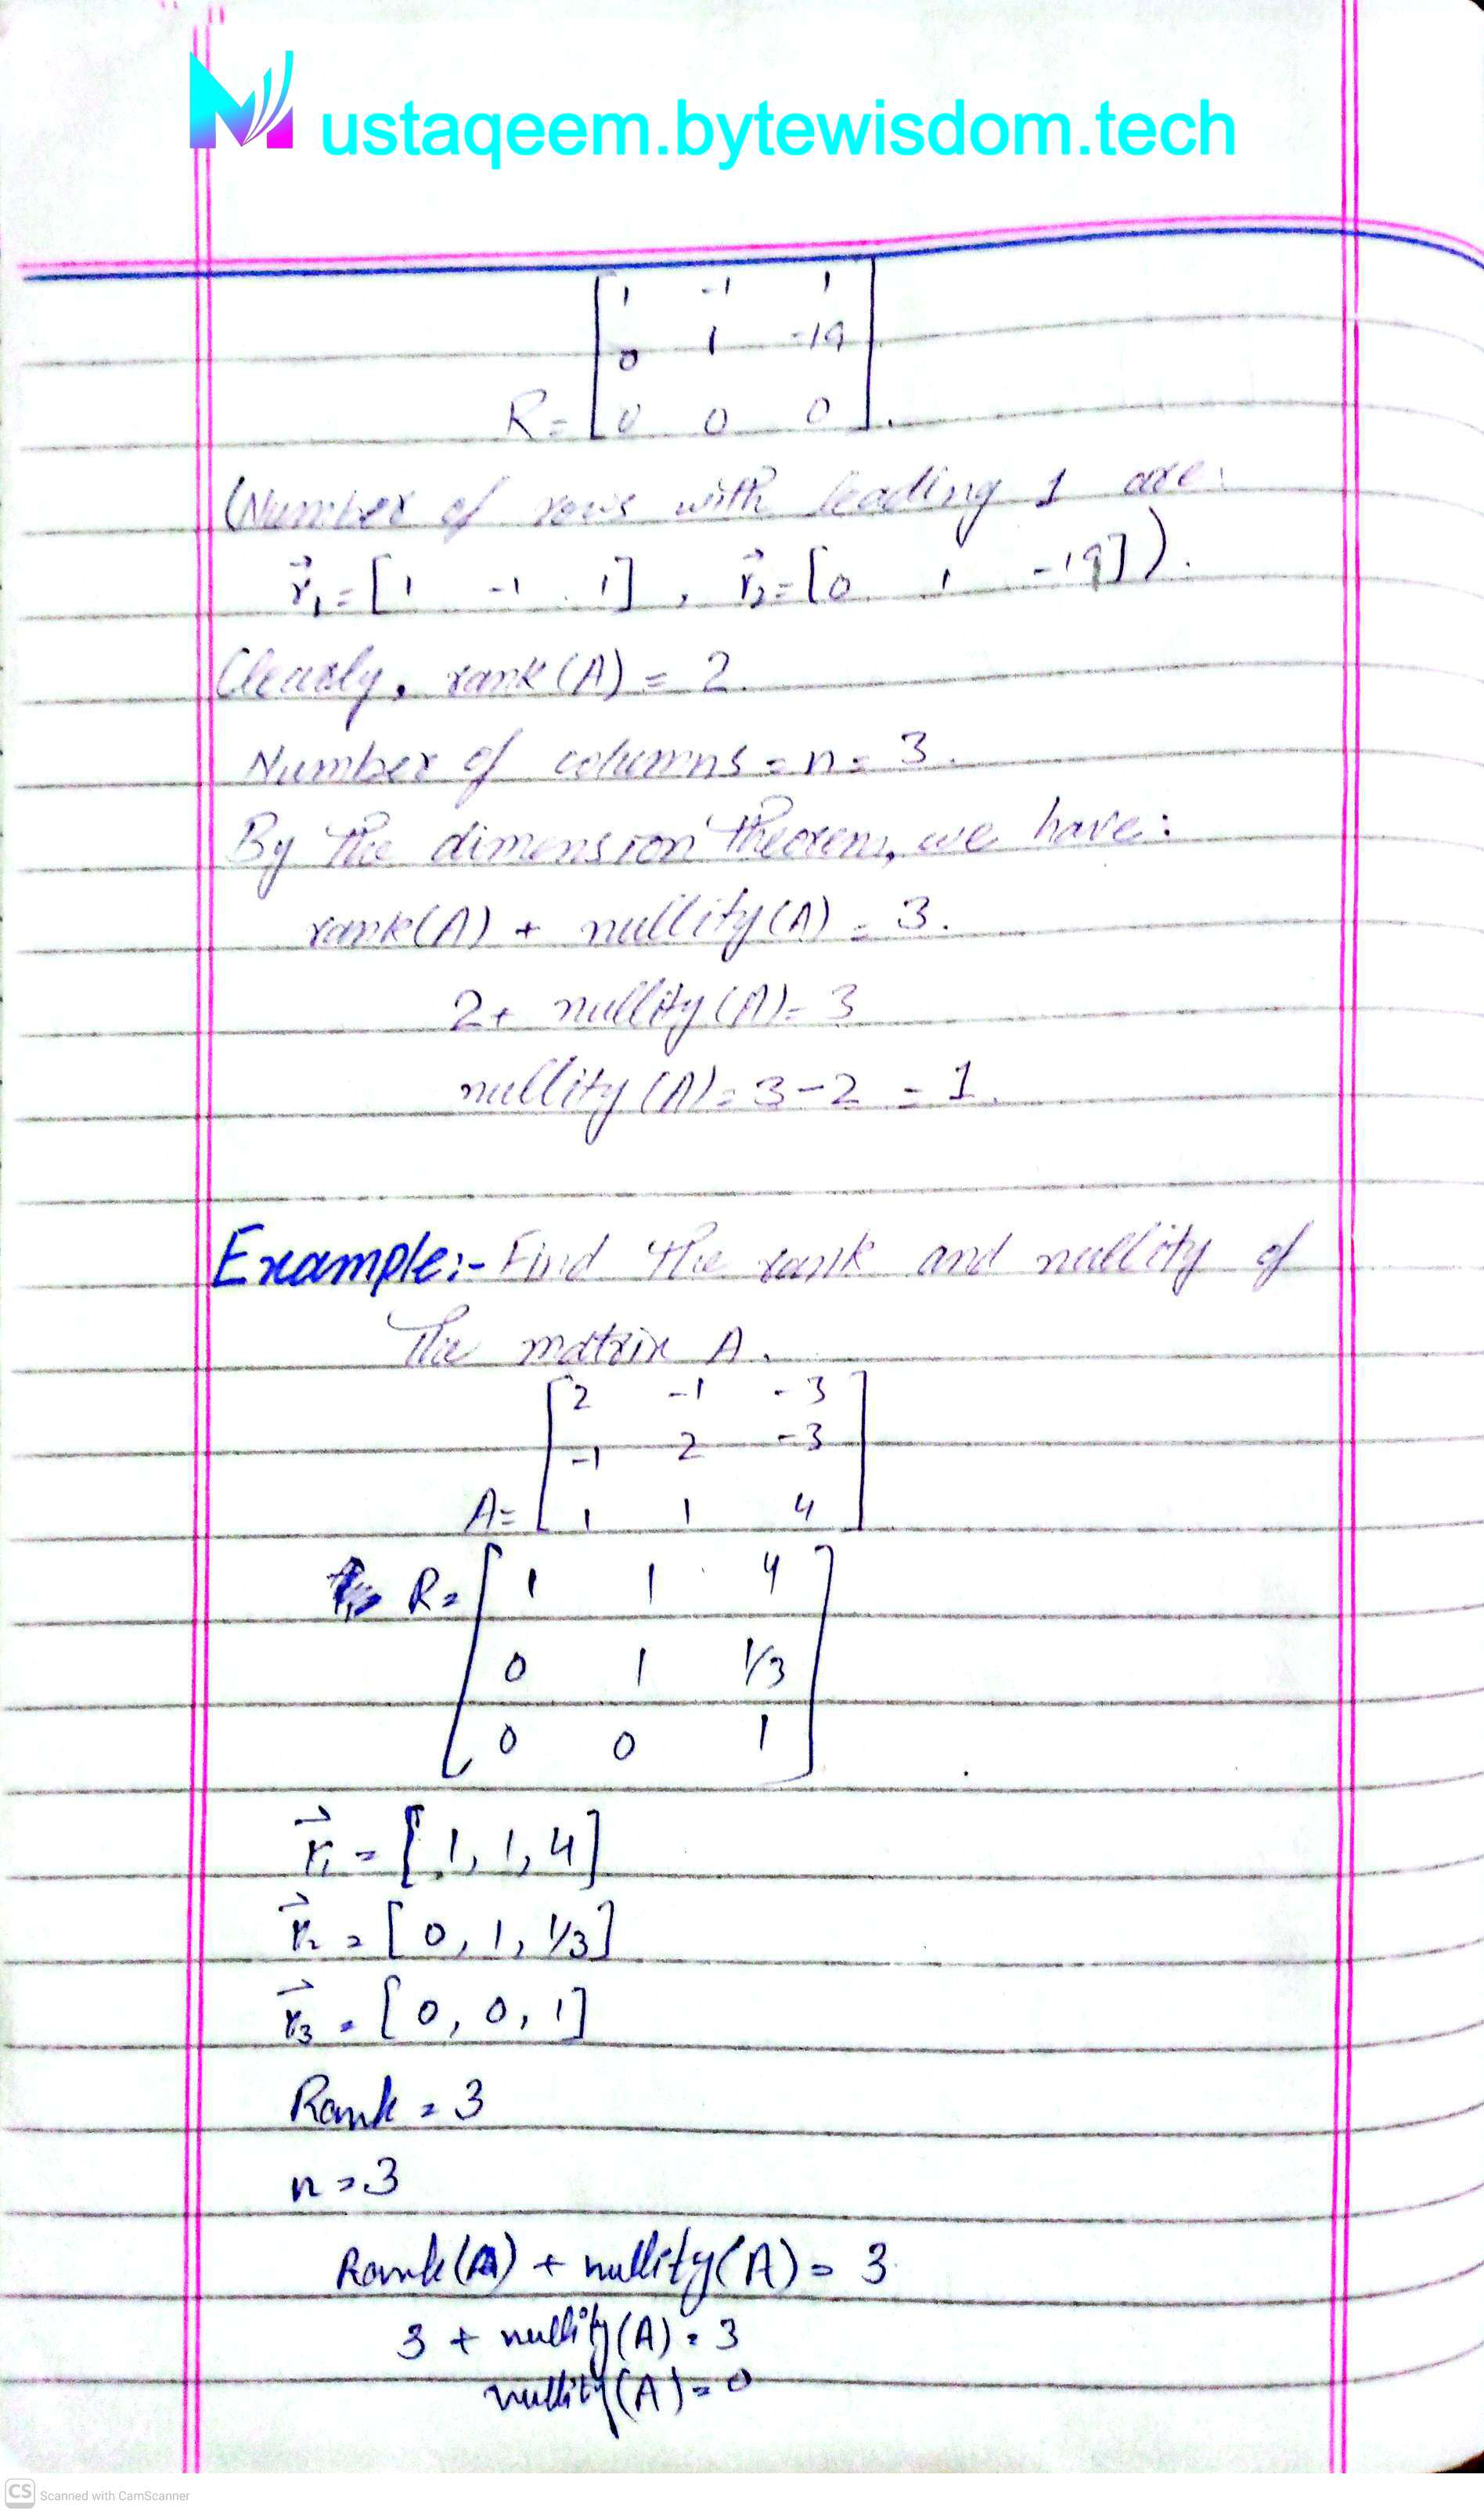 Mustaqeem.bytewisdom.tech
1 -1 1
0 1 -19
R = 0 0 0
(Number of rows with leading 1 are:
r₁ = [1 -1 1], r₂ = [0 1 -19]).
Clearly, rank(A) = 2.
Number of columns = n = 3.
By the dimension theorem, we have:
rank(A) + nullity(A) = 3.
2 + nullity(A) = 3
nullity(A) = 3 - 2 = 1.
Example:- Find the rank and nullity of
the matrix A.
2 -1 -3
-1 2 -3
A = 1 1 4
R = 1 1 4
0 1 1/3
0 0 1
r₁ = [1, 1, 4]
r₂ = [0, 1, 1/3]
r₃ = [0, 0, 1]
Rank = 3
n = 3
Rank(A) + nullity(A) = 3.
3 + nullity(A) = 3
nullity(A) = 0
CS Scanned with CamScanner